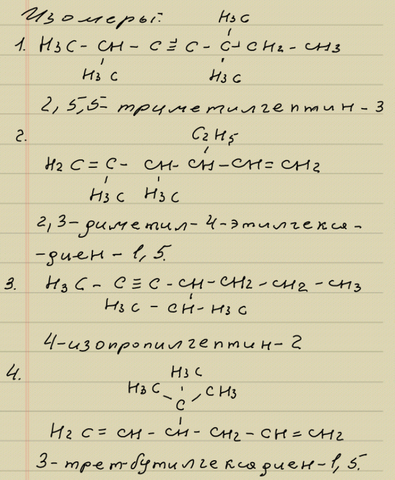 Изомеры:
H₃C
1. H₃C - CH - C ≡ C - C - CH₂ - CH₃
H₃C H₃C
2,5,5- триметилгептин - 3
2. C₂H₅
H₂C = C - CH - CH - CH = CH₂
H₃C H₃C
2,3-диметил-4-этилгекса-
-диен-1,5.
3. H₃C - C ≡ C - CH - CH₂ - CH₂ - CH₃
H₃C - CH - H₃C
4-изопропилгептин-2
4. H₃C
H₃C CH₃
C
H₂C = CH - CH - CH₂ - CH = CH₂
3-трет-бутилгексадиен-1,5.